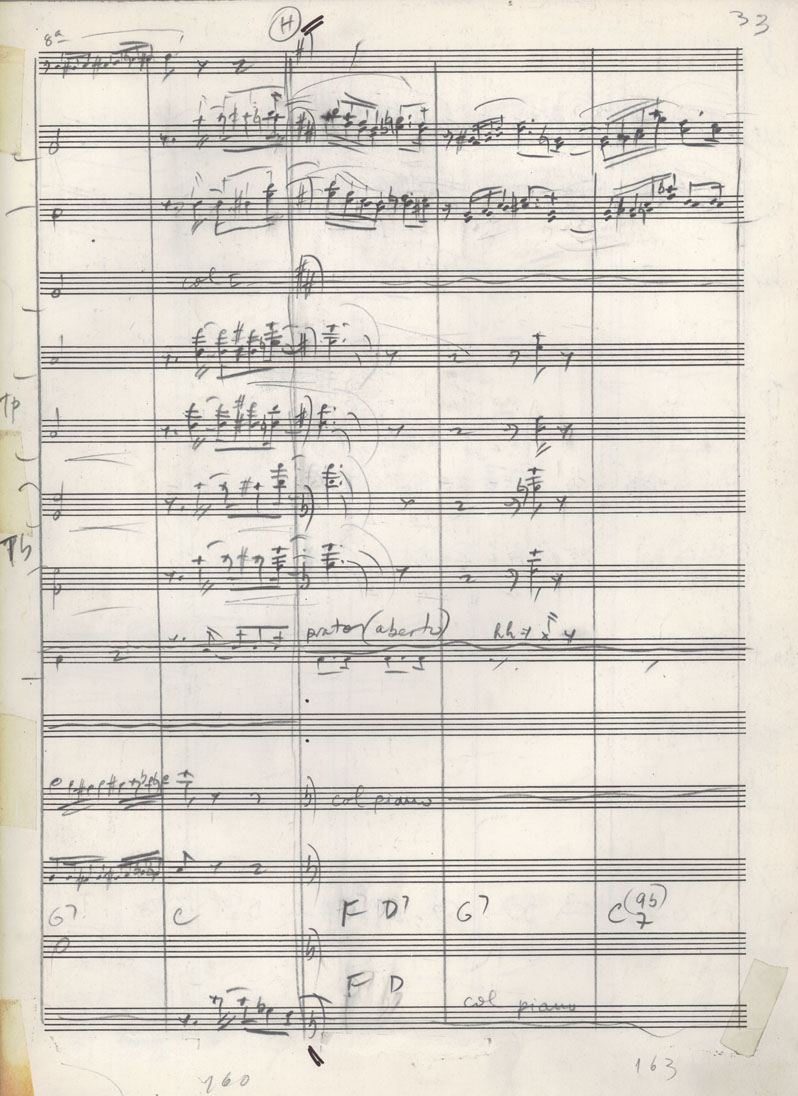 33
H
8a
col I
Tp
Tb
prato (aberto)
hh
col piano
G7 C F D7 G7 C(9b)7
F D
col piano
160 163